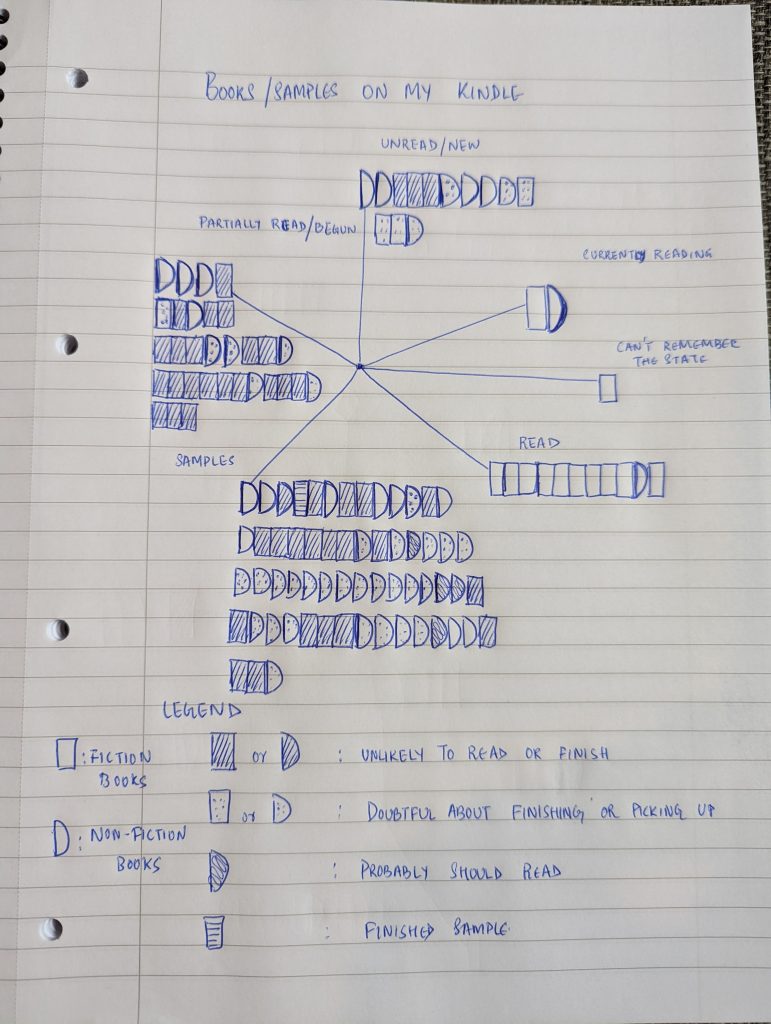 BOOKS/SAMPLES ON MY KINDLE
UNREAD/NEW
PARTIALLY READ/BEGUN
CURRENTLY READING
CAN'T REMEMBER
THE STATE
READ
SAMPLES
LEGEND
: FICTION
BOOKS
or : UNLIKELY TO READ OR FINISH
or : DOUBTFUL ABOUT FINISHING OR PICKING UP
: NON-FICTION
BOOKS
: PROBABLY SHOULD READ
: FINISHED SAMPLE